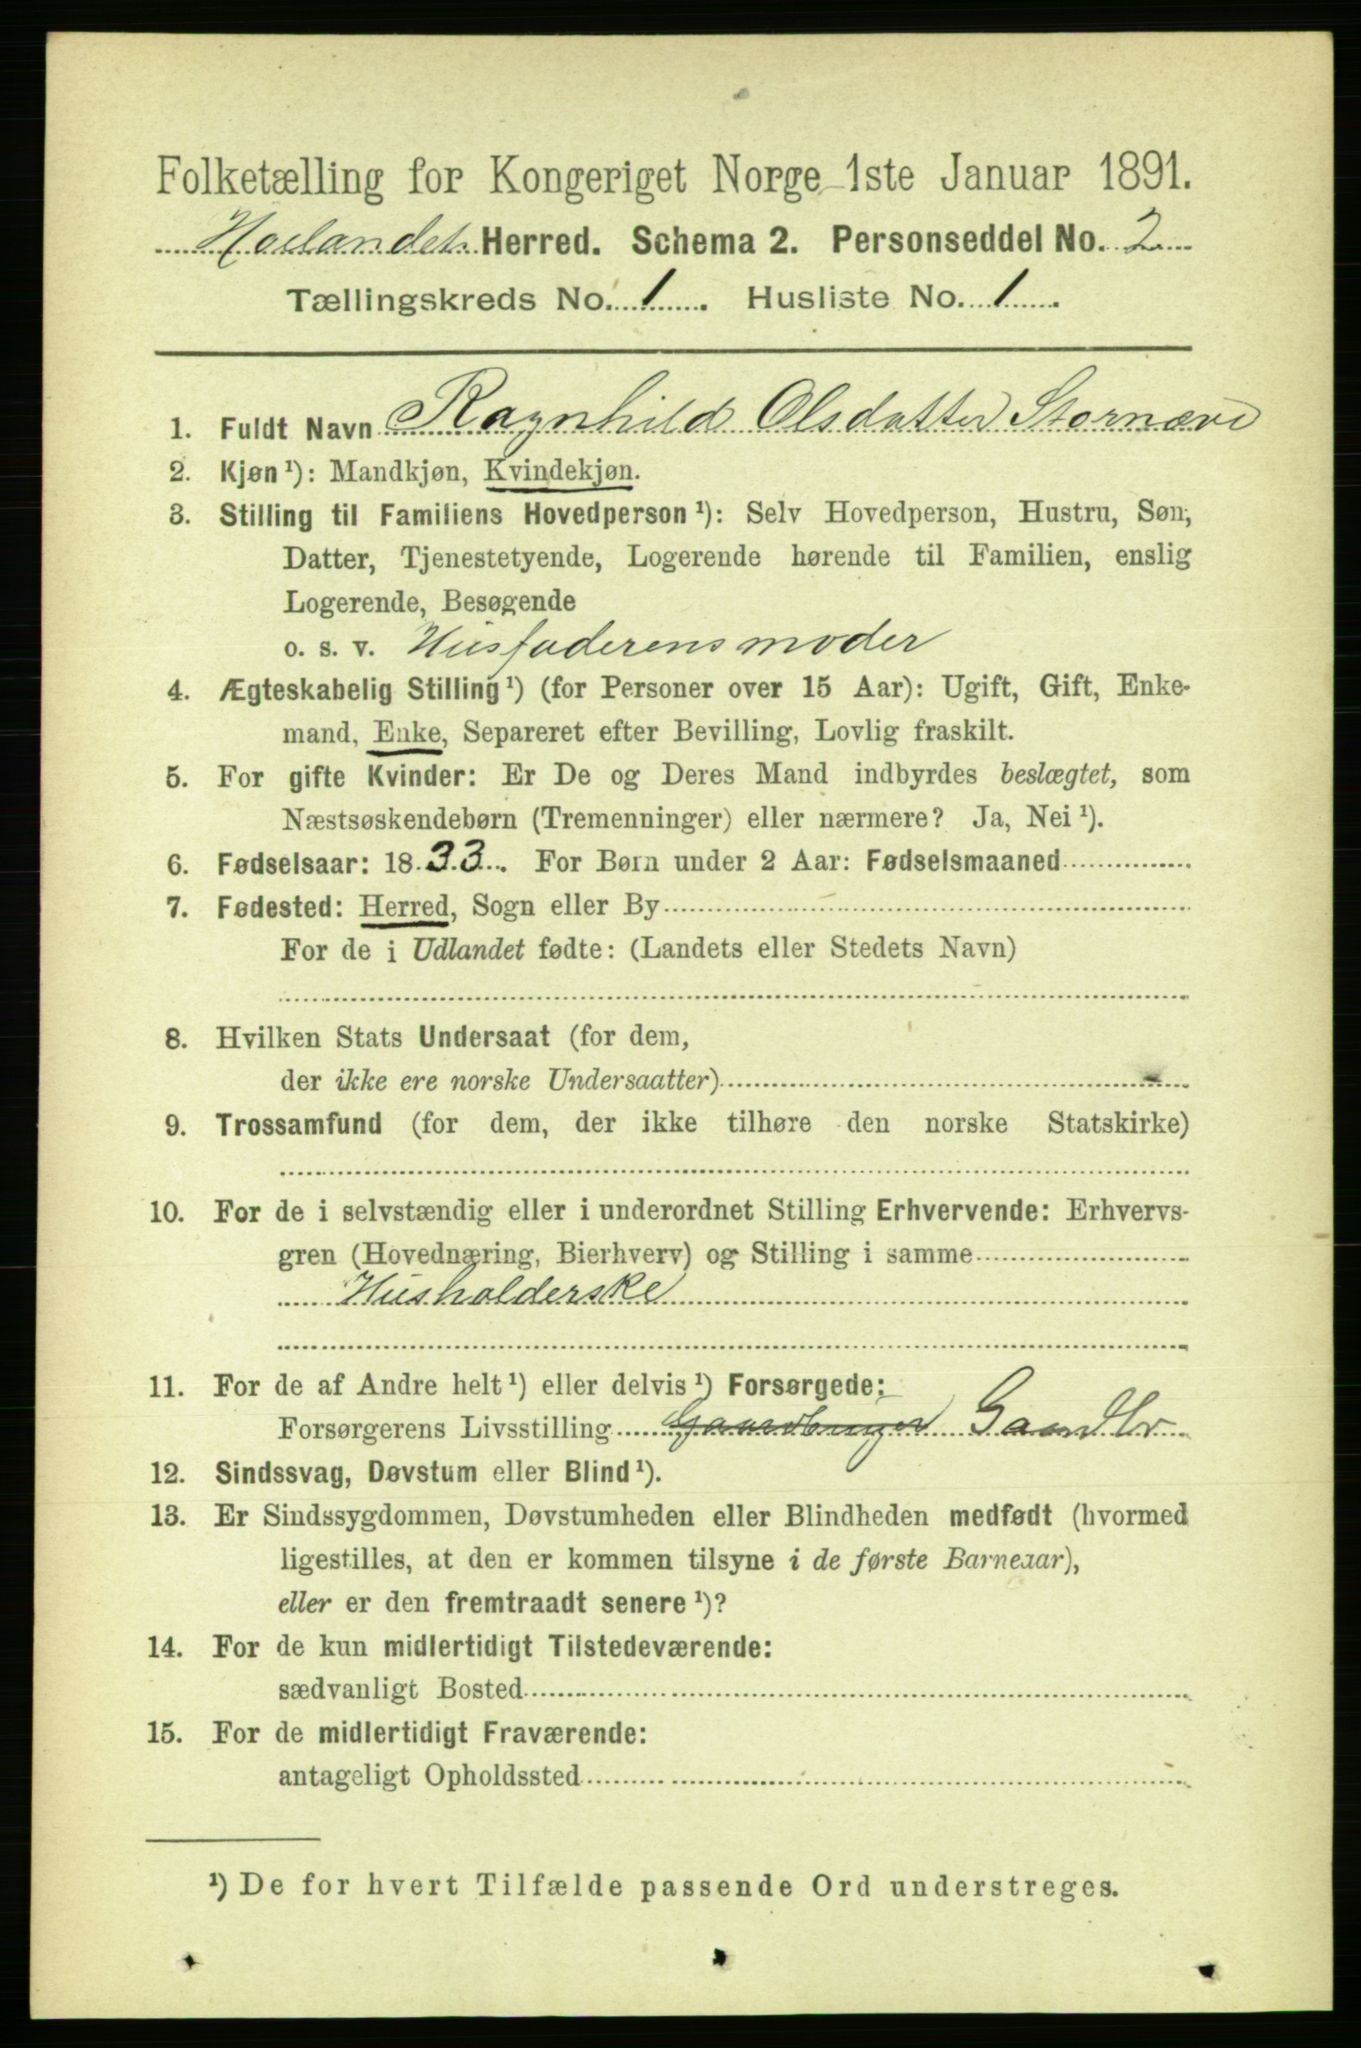 Folketælling for Kongeriget Norge 1ste Januar 1891.
Høilandets Herred. Schema 2. Personseddel No. 2
Tællingskreds No. 1. Husliste No. 1.
1. Fuldt Navn Ragnhild Olsdatter Stornævi
2. Kjøn ¹): Mandkjøn, Kvindekjøn.
3. Stilling til Familiens Hovedperson ¹): Selv Hovedperson, Hustru, Søn,
Datter, Tjenestetyende, Logerende hørende til Familien, enslig
Logerende, Besøgende
o. s. v. Husfaderens moder
4. Ægteskabelig Stilling ¹) (for Personer over 15 Aar): Ugift, Gift, Enke-
mand, Enke, Separeret efter Bevilling, Lovlig fraskilt.
5. For gifte Kvinder: Er De og Deres Mand indbyrdes beslægtet, som
Næstsøskendebørn (Tremenninger) eller nærmere? Ja, Nei ¹).
6. Fødselsaar: 1833. For Børn under 2 Aar: Fødselsmaaned
7. Fødested: Herred, Sogn eller By
For de i Udlandet fødte: (Landets eller Stedets Navn)
8. Hvilken Stats Undersaat (for dem,
der ikke ere norske Undersaatter)
9. Trossamfund (for dem, der ikke tilhøre den norske Statskirke)
10. For de i selvstændig eller i underordnet Stilling Erhvervende: Erhvervs-
gren (Hovednæring, Bierhverv) og Stilling i samme
Husholderske
11. For de af Andre helt ¹) eller delvis ¹) Forsørgede:
Forsørgerens Livsstilling Gaardbruger Gaardbr
12. Sindssvag, Døvstum eller Blind ¹).
13. Er Sindssygdommen, Døvstumheden eller Blindheden medfødt (hvormed
ligestilles, at den er kommen tilsyne i de første Barneaar),
eller er den fremtraadt senere ¹)?
14. For de kun midlertidigt Tilstedeværende:
sædvanligt Bosted
15. For de midlertidigt Fraværende:
antageligt Opholdssted
¹) De for hvert Tilfælde passende Ord understreges.